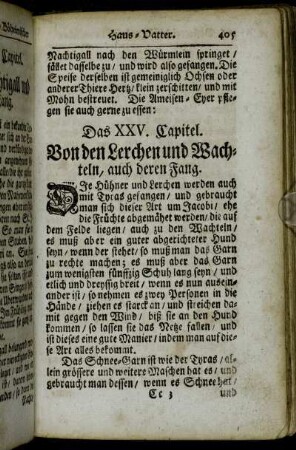 Haus-Vatter. 405
Nachtigall nach den Würmlein springet/
fället dasselbe zu/ und wird also gefangen. Die
Speise derselben ist gemeiniglich Ochsen oder
anderer Thiere Hertz/ klein zerschitten/ und mit
Mohn bestreuet. Die Ameisen-Eyer pfle-
gen sie auch gerne zu essen:
Das XXV. Capitel.
Von den Lerchen und Wach-
teln, auch deren Fang.
DIe Hühner und Lerchen werden auch
mit Tyras gefangen/ und gebraucht
man sich dieser Art um Jacobi/ ehe
die Früchte abgemähet werden/ die auf
dem Felde liegen/ auch zu den Wachteln/
es muß aber ein guter abgerichteter Hund
seyn/ wenn der stehet/ so muß man das Garn
zu rechte machen; es muß aber das Garn
zum wenigsten fünffzig Schuh lang seyn/ und
etlich und dreyssig breit/ wenn es nun ausein-
ander ist/ so nehmen es zwey Personen in die
Hände/ ziehen es starck an/ und streichen da-
mit gegen den Wind/ biß sie an den Hund
kommen/ so lassen sie das Netze fallen/ und
ist dieses eine gute Manier/ indem man auf die-
se Art alles bekommt.
Das Schnee-Garn ist wie der Tyras/ al-
lein grössere und weitere Maschen hat es/ und
gebraucht man dessen/ wenn es Schnee hat/
Cc 3 und